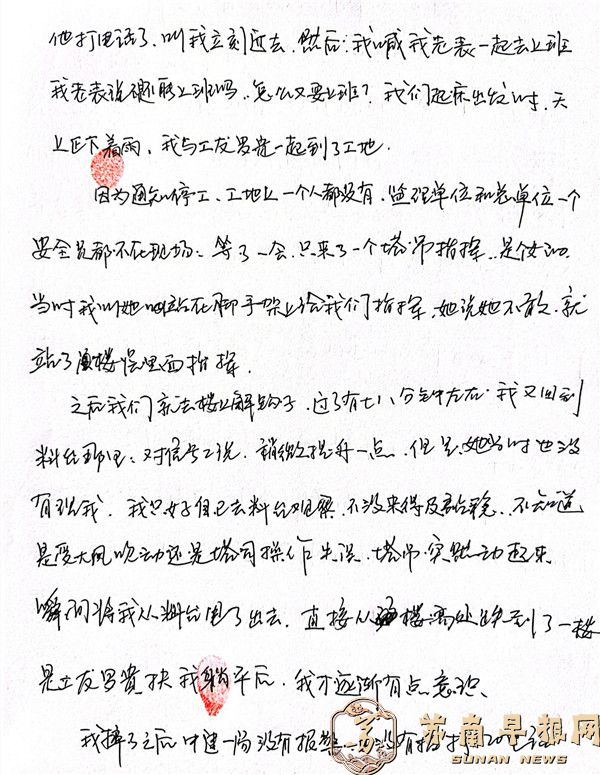 他打电话了，叫我立刻过去，然后：我喊我老表一起去上班
我老表说 上班吗，怎么又要上班？我们起床出发时，天
上正下着雨，我与工友罗 一起到了工地。
因为通知停工、工地上一个人都没有，监理单位和总单位一个
安全员都不在现场：等了一会，只来了一个塔吊指挥，是女的。
当时我叫她 站在脚手架上给我们指挥，她说她不敢，就
站了 楼层里面指挥。
之后我们就去楼上解钩子，过了有七八分钟左右，我又回到
料台那里：对信号工说，稍微提升一点，但是她当时也没
有理我，我只好自己去料台观察，不没来得及 稳，不知道
是受大风吹动还是塔司操作失误，塔吊突然动起来
瞬间将我从料台甩了出去，直接从 楼高处跌到了一楼
是工友罗贵 扶我躺平后，我才逐渐有点意识、
我摔了之后中建一局没有报案 没有
苏南早报网
SUNAN NEWS